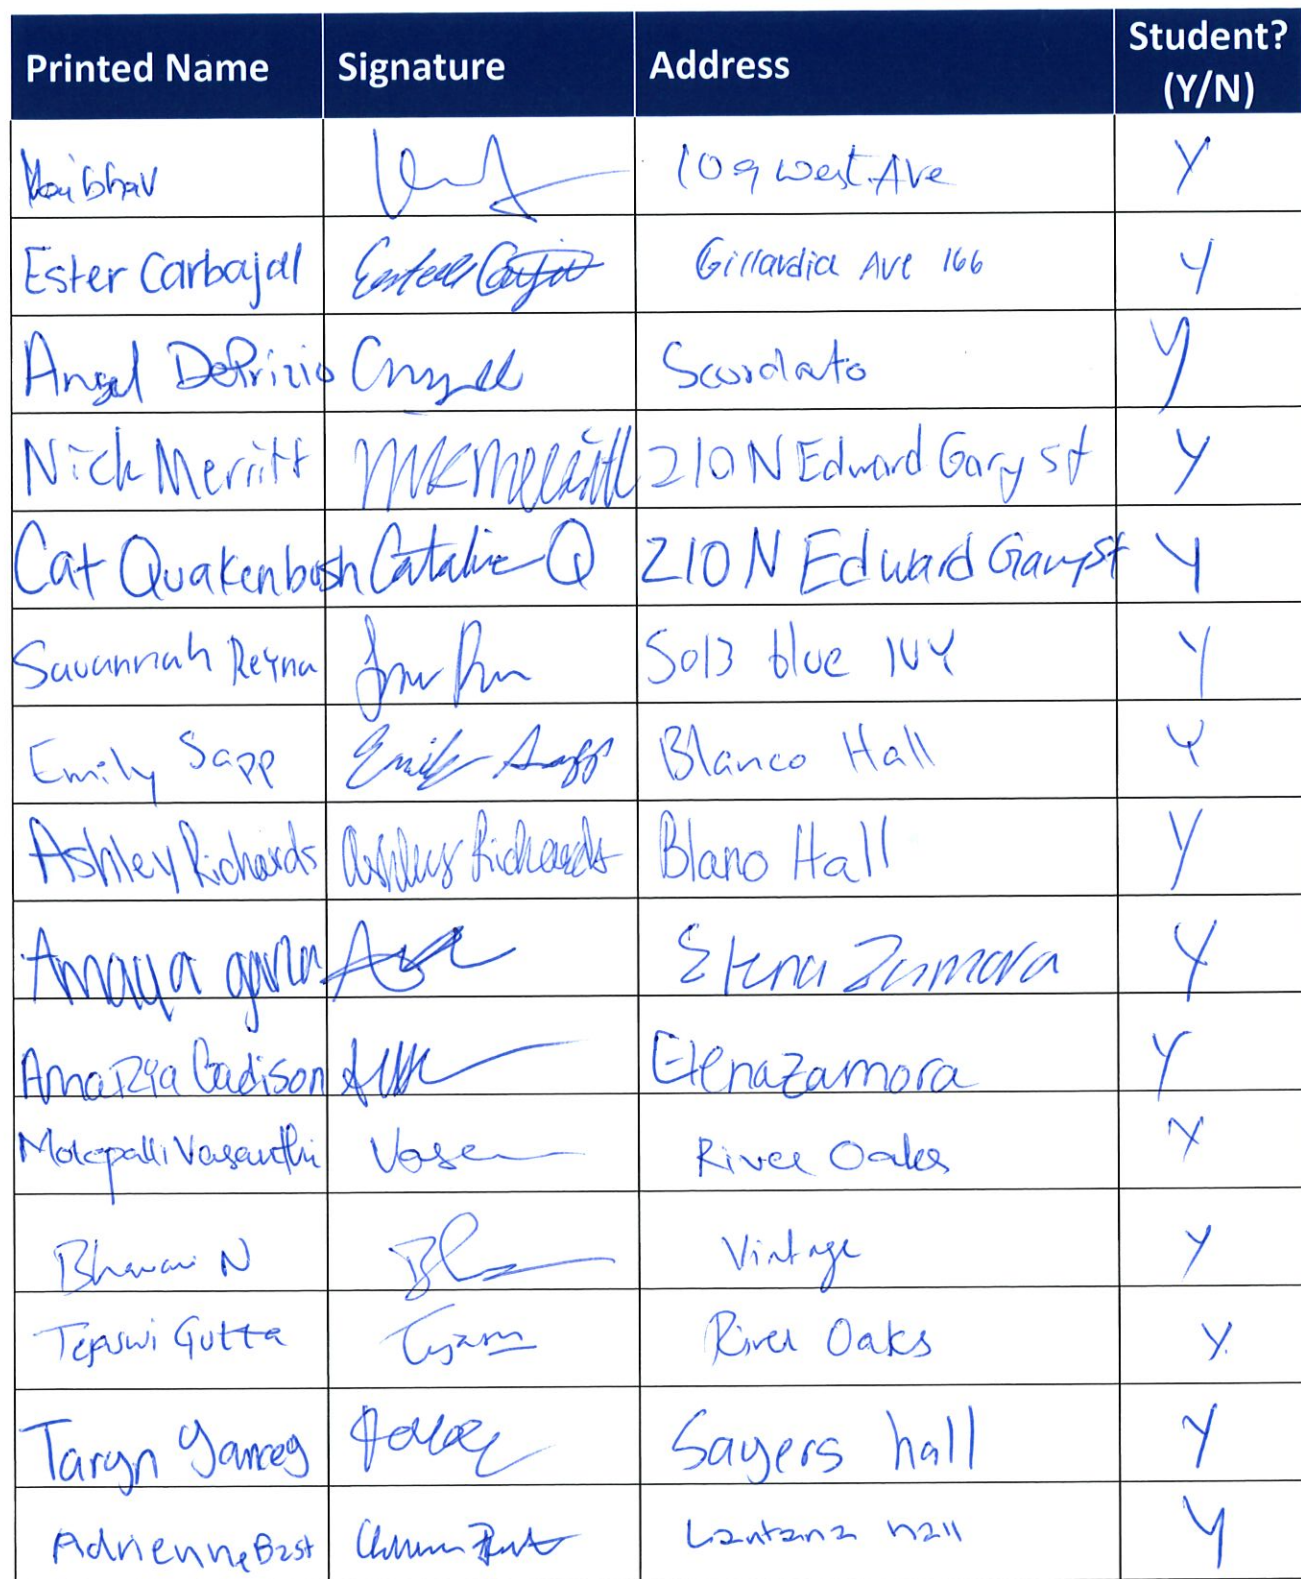 Printed Name Signature Address Student? (Y/N)
Vaibhav 109 West Ave Y
Ester Carbajal Gillardia Ave 166 Y
Angel DePrizio Scordato Y
Nick Merritt 210 N Edward Gary St Y
Cat Quakenbush Catalina Q 210 N Edward Gary St Y
Savannah Reyna 5013 blue IVY Y
Emily Sapp Emily Sapp Blanco Hall Y
Ashley Richards Ashley Richards Blano Hall Y
Amaya garza Elena Zamora Y
Elena Zamora Y
Vasanthi River Oaks Y
N Vintage Y
Tejaswi Gutta River Oaks Y.
Taryn Yancey Sayers hall Y
Adrienne Bast Lantana hall Y